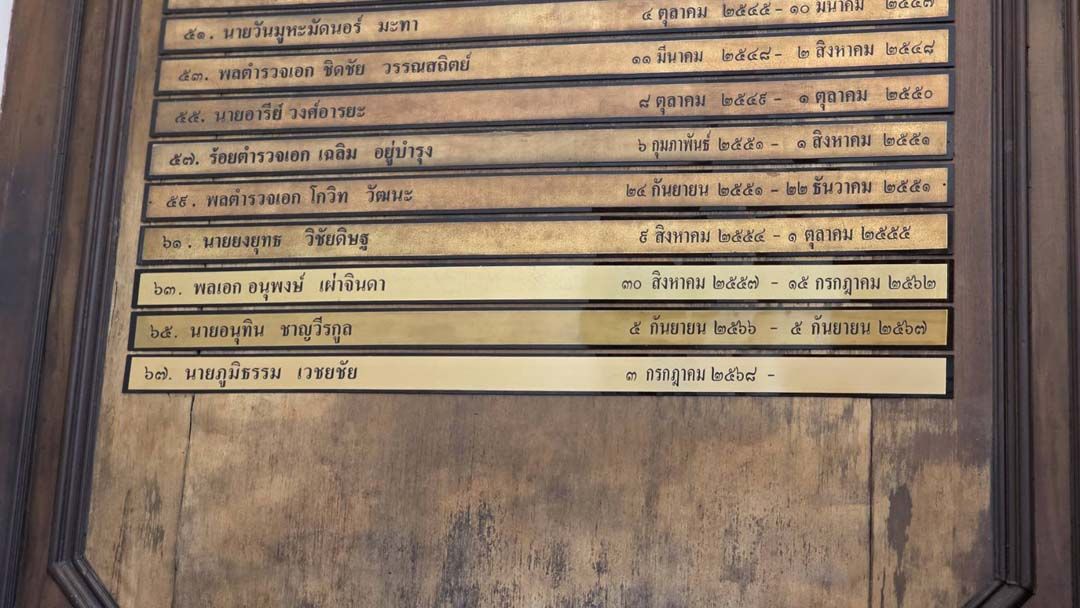 ๕๑. นายวันมูหะมัดนอร์ มะทา ๔ ตุลาคม ๒๕๔๕ - ๑๐ มีนาคม ๒๕๔๗
๕๓. พลตำรวจเอก ชิดชัย วรรณสถิตย์ ๑๑ มีนาคม ๒๕๔๘ - ๒ สิงหาคม ๒๕๔๘
๕๕. นายอารีย์ วงศ์อารยะ ๘ ตุลาคม ๒๕๔๙ - ๑ ตุลาคม ๒๕๕๐
๕๗. ร้อยตำรวจเอก เฉลิม อยู่บำรุง ๖ กุมภาพันธ์ ๒๕๕๑ - ๑ สิงหาคม ๒๕๕๑
๕๙. พลตำรวจเอก โกวิท วัฒนะ ๒๔ กันยายน ๒๕๕๑ - ๒๒ ธันวาคม ๒๕๕๑
๖๑. นายยงยุทธ วิชัยดิษฐ ๙ สิงหาคม ๒๕๕๔ - ๑ ตุลาคม ๒๕๕๕
๖๓. พลเอก อนุพงษ์ เผ่าจินดา ๓๐ สิงหาคม ๒๕๕๗ - ๑๕ กรกฎาคม ๒๕๖๒
๖๕. นายอนุทิน ชาญวีรกูล ๕ กันยายน ๒๕๖๖ - ๕ กันยายน ๒๕๖๗
๖๗. นายภูมิธรรม เวชยชัย ๓ กรกฎาคม ๒๕๖๘ -